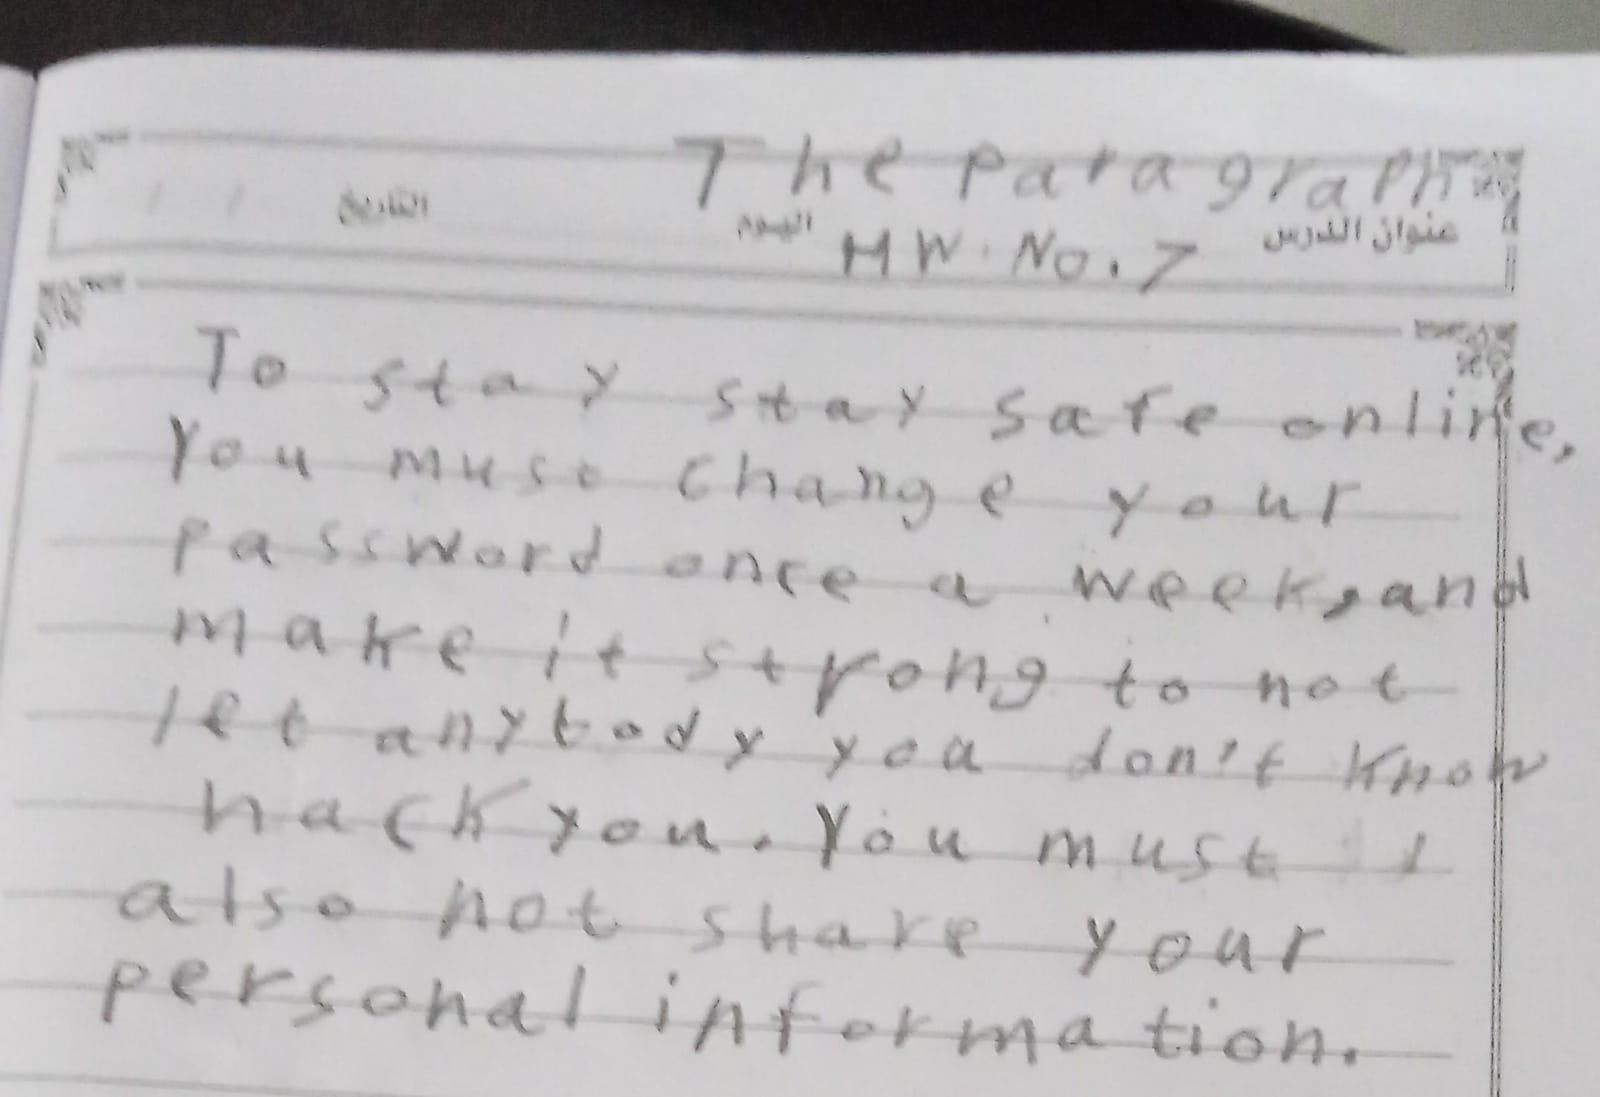 The Paragraph
التاريخ اليوم عنوان الدرس
HW. No. 7
To stay stay safe online,
You must change your
password once a week, and
make it strong to not
let anybody you don't know
hack you. You must
also not share your
personal information.